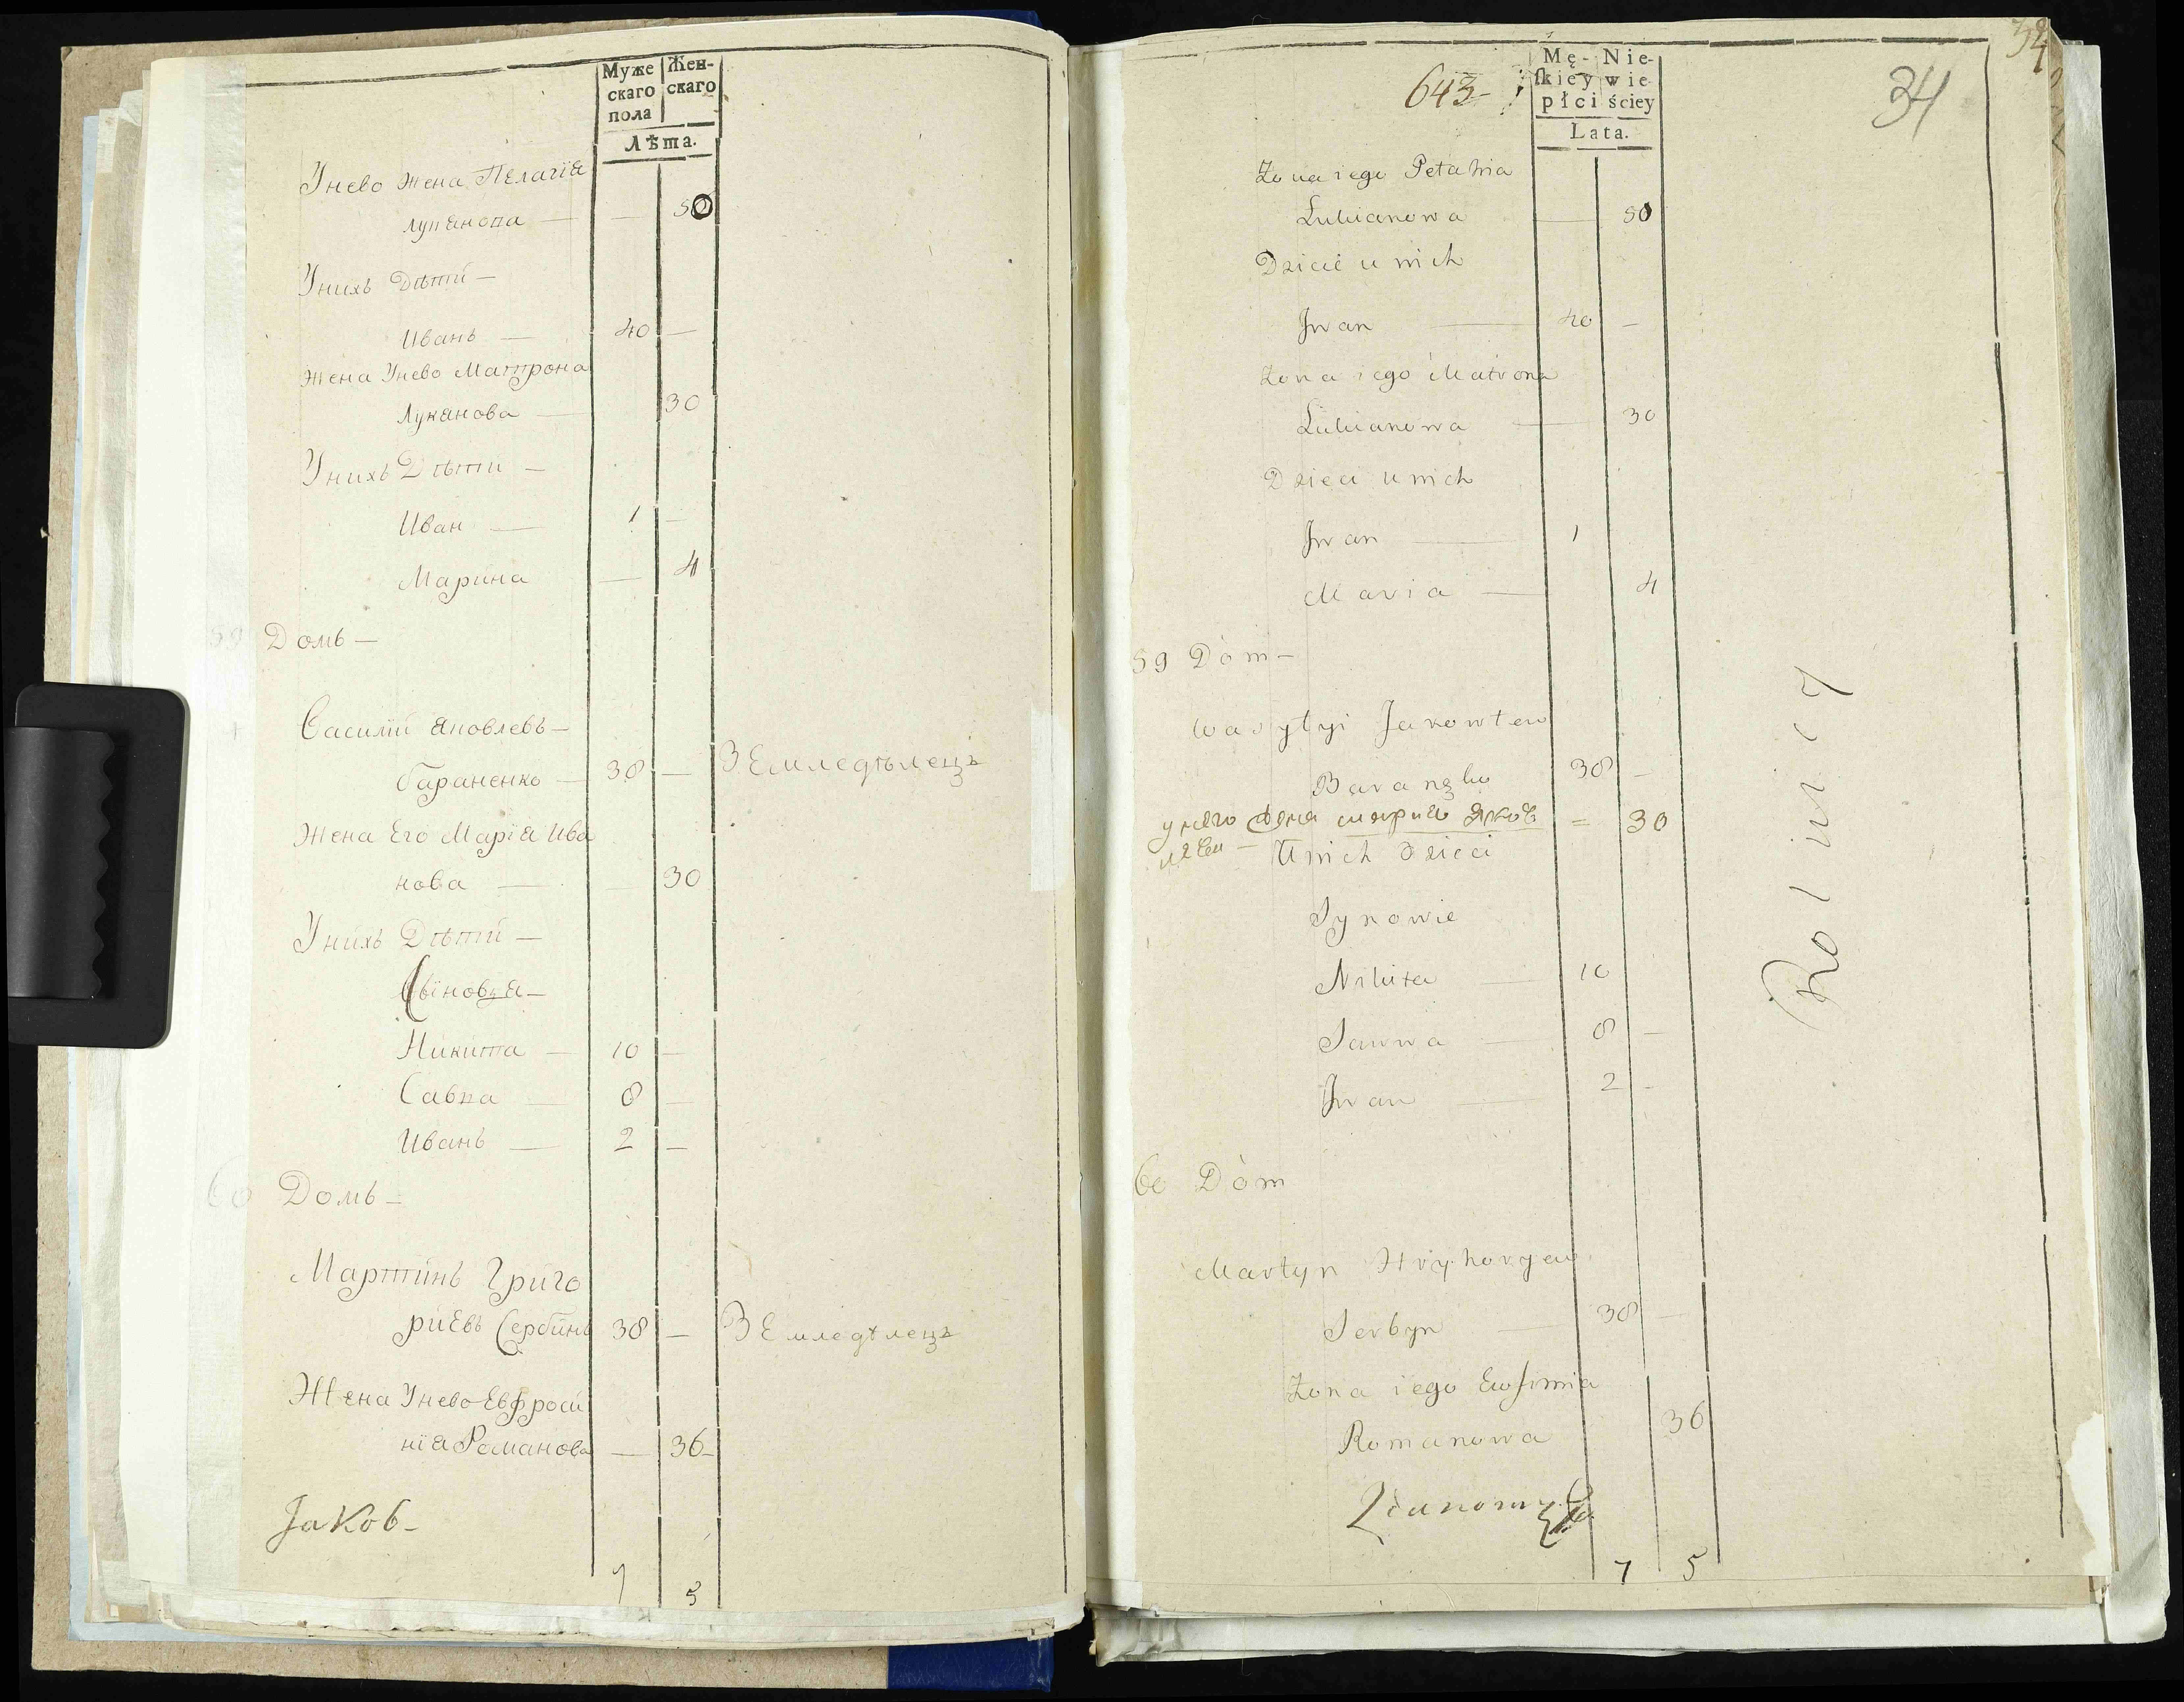 Муже Жен-
скаго скаго
пола
Лѣта.
Унево жена Пелагїя
Луkянова — — 50
Унихъ Дѣти —
Иванъ — 40 —
Жена Унево Матрона
Лукянова — 30
Унихъ Дѣти —
Иван — 1 —
Марина — 4
59 Домъ —
Василий Яковлевъ —
Бараненко — 38 — Земледѣлецъ
Жена Его Марїя Ива
нова — — 30
Унихъ Дѣти —
Сїновья —
Никита — 10 —
Савва — 8 —
Иванъ — 2 —
60 Домъ —
Мартинъ Григо
риевъ Сербинъ 38 — Земледѣлецъ
Жена Унево Евфроси
нїя Романова — 36 —
Jаков —
7 5
34
643 —
Mę- Nie-
ſkiey wie-
płci ściey
Lata.
34
Żona iego Pełahia
Lukianowa — 50
Dzieci u nich
Jwan — 40 —
Żona iego Matrona
Lukianowa — 30
Dzieci u nich
Jwan — 1
Maria — 4
59 Dóm —
Wasylyi Jakowlew
Baranęko 38 —
унего жена = 30
U nich dzieci
Synowie
Nikita — 10
Sawwa — 8 —
Jwan — 2 —
Rolnicy
60 Dóm
Martyn Hryhoryew
Serbyn — 38 —
Żona iego Ewfimia
Romanowa 36
7 5